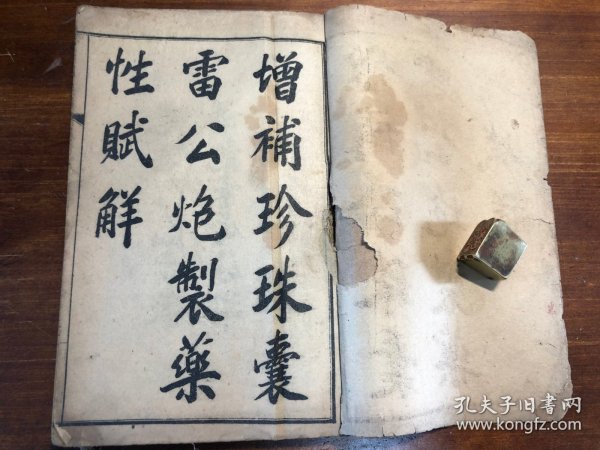 增補珍珠囊
雷公炮製藥
性賦解
孔夫子旧书网
www.kongfz.com